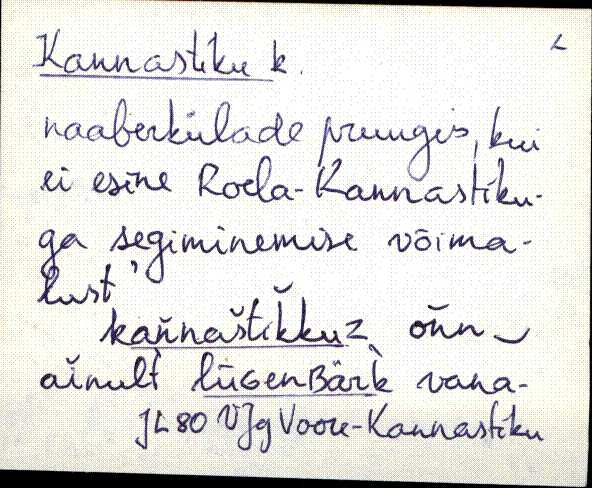 Kannastiku k.
naaberkülade pruugis, kui
ei esine Roela-Kannastiku-
ga segiminemise võima-
lust
kan̆naštikkuz on̆n
ain̆ult lüGenBärk vana-
JL 80 VJg Voore-Kannastiku